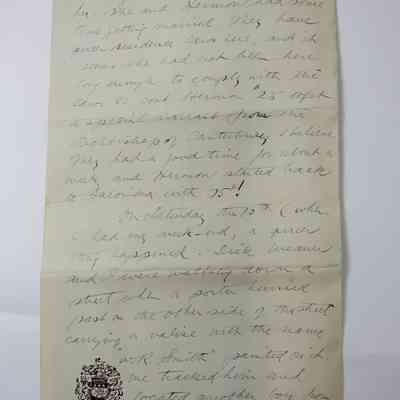 by. She and Hermon had some
time getting married. They have
over here, and it
seems she had not been here
long enough to comply with the
laws so cost Hermon $25 to get
a special warrant from the
Archbishop of Canterbury. I believe
they had a good time for about a
week and Hermon started back
to Salonika with 75¢!
On Saturday the 15th (when
I had my week-end, a queer
thing happened. Dick Weaver
and I were walking down a
street when a porter hurried
past on the other side of the street
carrying a valise with the name
"W.R. Smith" painted on it.
We tracked him and
located another boy from